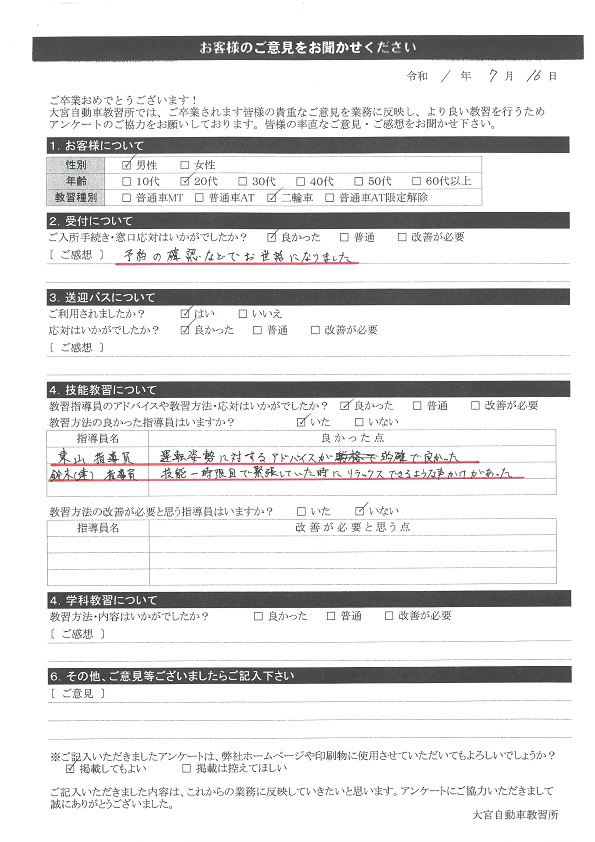 お客様のご意見をお聞かせください
令和 1 年 7 月 16 日
ご卒業おめでとうございます！
大宮自動車教習所では、ご卒業されます皆様の貴重なご意見を業務に反映し、より良い教習を行うため
アンケートのご協力をお願いしております。皆様の率直なご意見・ご感想をお聞かせ下さい。
1. お客様について
性別 ☑男性 □女性
年齢 □10代 ☑20代 □30代 □40代 □50代 □60代以上
教習種別 □普通車MT □普通車AT ☑二輪車 □普通車AT限定解除
2. 受付について
ご入所手続き・窓口応対はいかがでしたか？ ☑良かった □普通 □改善が必要
〔 ご感想 〕 予約の確認などでお世話になりました
3. 送迎バスについて
ご利用されましたか？ ☑はい □いいえ
応対はいかがでしたか？ ☑良かった □普通 □改善が必要
〔 ご感想 〕
4. 技能教習について
教習指導員のアドバイスや教習方法・応対はいかがでしたか？ ☑良かった □普通 □改善が必要
教習方法の良かった指導員はいますか？ ☑いた □いない
指導員名 良かった点
東山 指導員 運転姿勢に対するアドバイスが 的確で良かった
鈴木( ) 指導員 技能一時限目で緊張していた時にリラックスできるような声かけがあった
教習方法の改善が必要と思う指導員はいますか？ □いた ☑いない
指導員名 改善が必要と思う点
4. 学科教習について
教習方法・内容はいかがでしたか？ □良かった □普通 □改善が必要
〔 ご感想 〕
6. その他、ご意見等ございましたらご記入下さい
〔 ご意見 〕
※ご記入いただきましたアンケートは、弊社ホームページや印刷物に使用させていただいてもよろしいでしょうか？
☑掲載してもよい □掲載は控えてほしい
ご記入いただきました内容は、これからの業務に反映していきたいと思います。アンケートにご協力いただきまして
誠にありがとうございました。
大宮自動車教習所